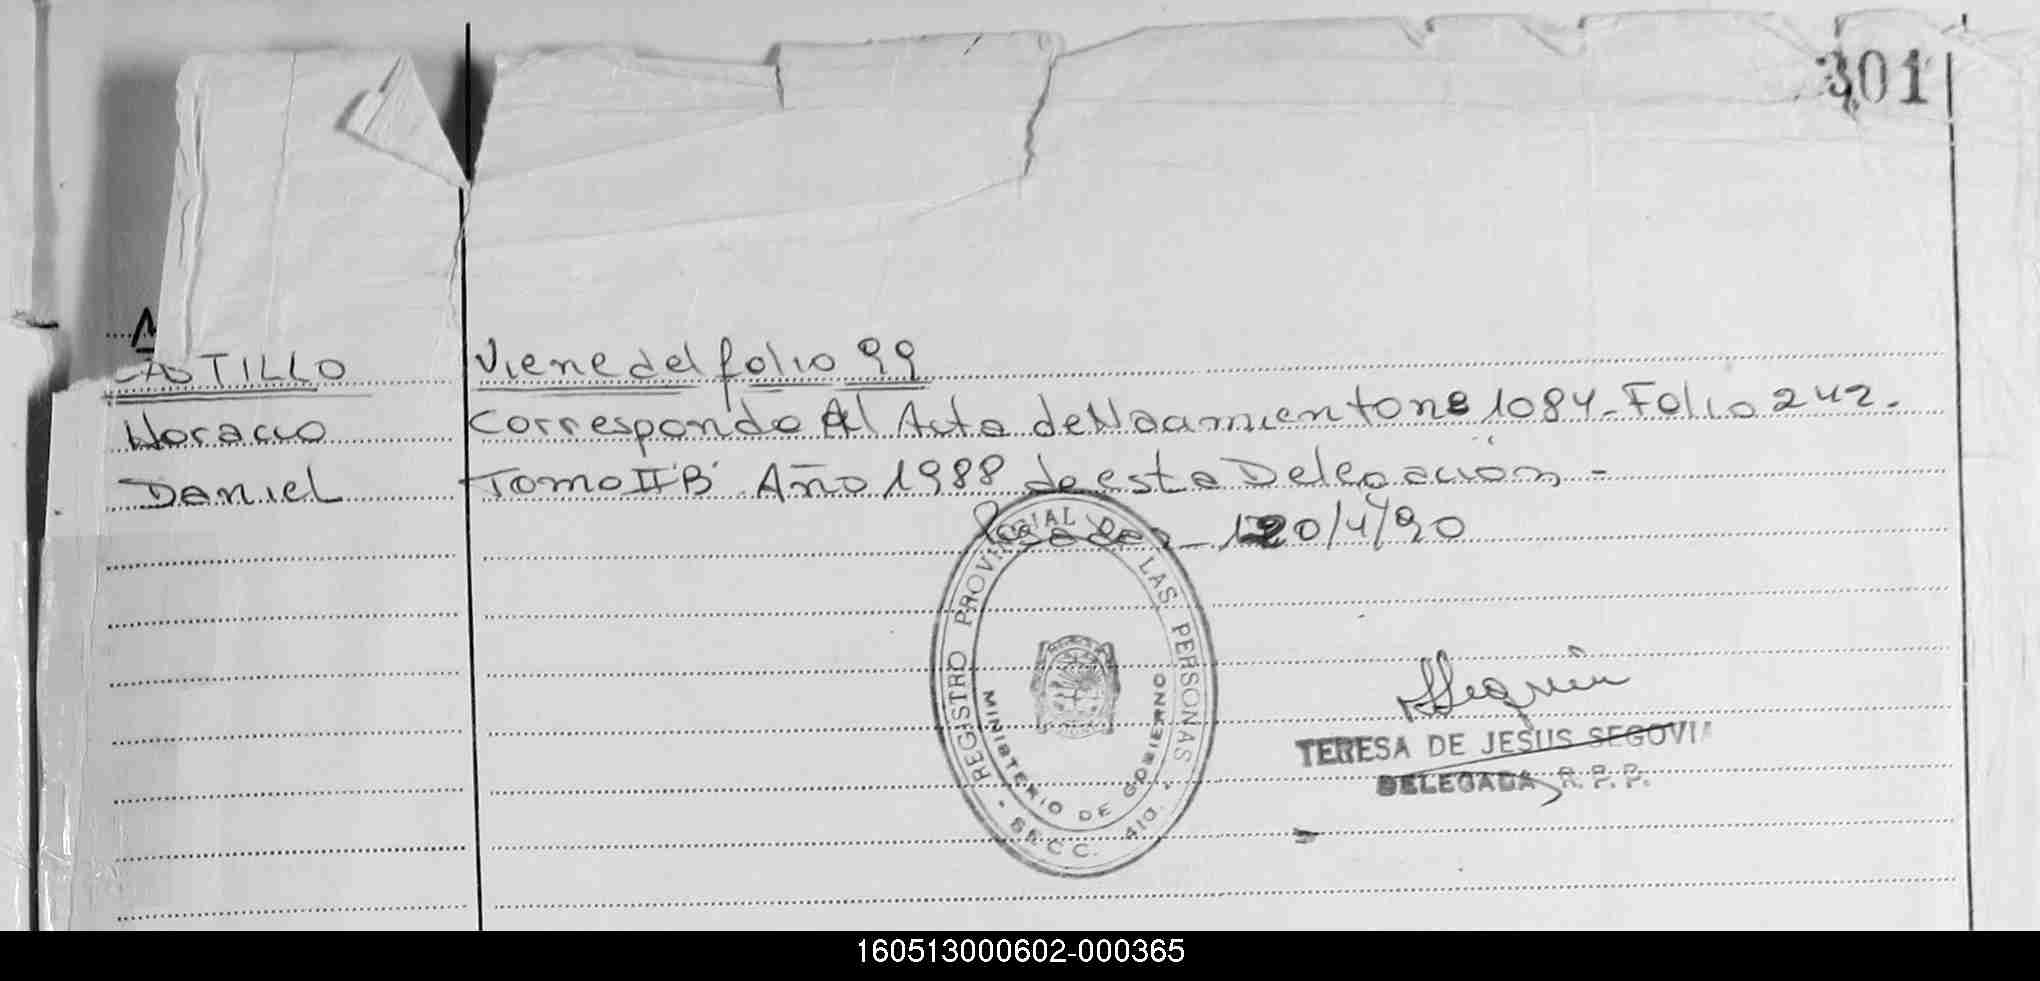 301
CASTILLO
Horacio
Daniel
Viene del folio 99
Corresponde Al Acta de Nacimiento ne 1084 - Folio 242.
Tomo II "B" Año 1988 de esta Delegación -
Posadas - 20/4/90
REGISTRO PROVINCIAL DE LAS PERSONAS
MINISTERIO DE GOBIERNO
SECC. 4ta.
TERESA DE JESUS SEGOVIA
DELEGADA R. P. P.
160513000602-000365